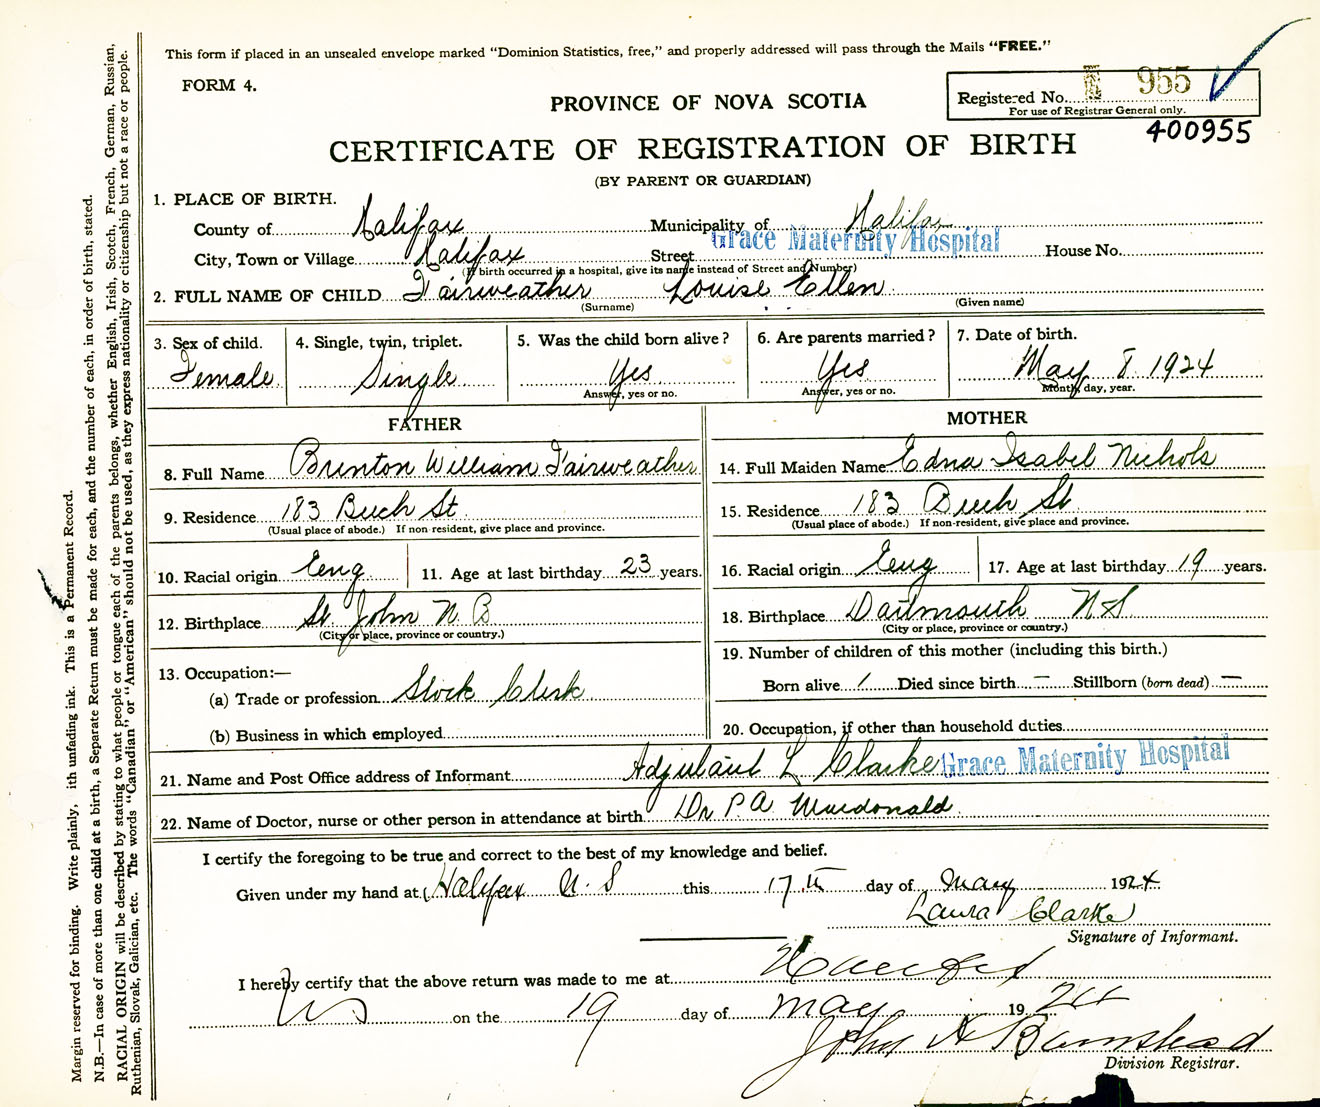 This form if placed in an unsealed envelope marked "Dominion Statistics, free," and properly addressed will pass through the Mails "FREE."
FORM 4.
Registered No. 955
For use of Registrar General only.
400955
PROVINCE OF NOVA SCOTIA
CERTIFICATE OF REGISTRATION OF BIRTH
(BY PARENT OR GUARDIAN)
1. PLACE OF BIRTH.
County of Halifax Municipality of Halifax
City, Town or Village Halifax Street Grace Maternity Hospital House No.
(If birth occurred in a hospital, give its name instead of Street and Number)
2. FULL NAME OF CHILD Fairweather Louise Ellen
(Surname) (Given name)
3. Sex of child. 4. Single, twin, triplet. 5. Was the child born alive? 6. Are parents married? 7. Date of birth.
Female Single Yes Yes May 8 1924
Answer, yes or no. Answer, yes or no. Month, day, year.
FATHER MOTHER
8. Full Name Brinton William Fairweather 14. Full Maiden Name Edna Isabel Nichols
9. Residence 183 Buch St. 15. Residence 183 Buch St
(Usual place of abode.) If non-resident, give place and province. (Usual place of abode.) If non-resident, give place and province.
10. Racial origin Eng 11. Age at last birthday 23 years. 16. Racial origin Eng 17. Age at last birthday 19 years.
12. Birthplace St John N B 18. Birthplace Dartmouth N S
(City or place, province or country.) (City or place, province or country.)
13. Occupation:— 19. Number of children of this mother (including this birth.)
(a) Trade or profession Stock Clerk Born alive 1 Died since birth — Stillborn (born dead) —
(b) Business in which employed 20. Occupation, if other than household duties
21. Name and Post Office address of Informant Adjutant L Clarke Grace Maternity Hospital
22. Name of Doctor, nurse or other person in attendance at birth Dr P. A Macdonald
I certify the foregoing to be true and correct to the best of my knowledge and belief.
Given under my hand at Halifax N. S this 17th day of May 1924
Laura Clarke
Signature of Informant.
I hereby certify that the above return was made to me at Halifax
NS on the 19 day of May 1924
John A Barnstead
Division Registrar.
Margin reserved for binding. Write plainly, ith unfading ink. This is a Permanent Record.
N.B.—In case of more than one child at a birth, a Separate Return must be made for each, and the number of each, in order of birth, stated.
RACIAL ORIGIN will be described by stating to what people or tongue each of the parents belongs, whether English, Irish, Scotch, French, German, Russian,
Ruthenian, Slovak, Galician, etc. The words "Canadian" or "American" should not be used, as they express nationality or citizenship but not a race or people.